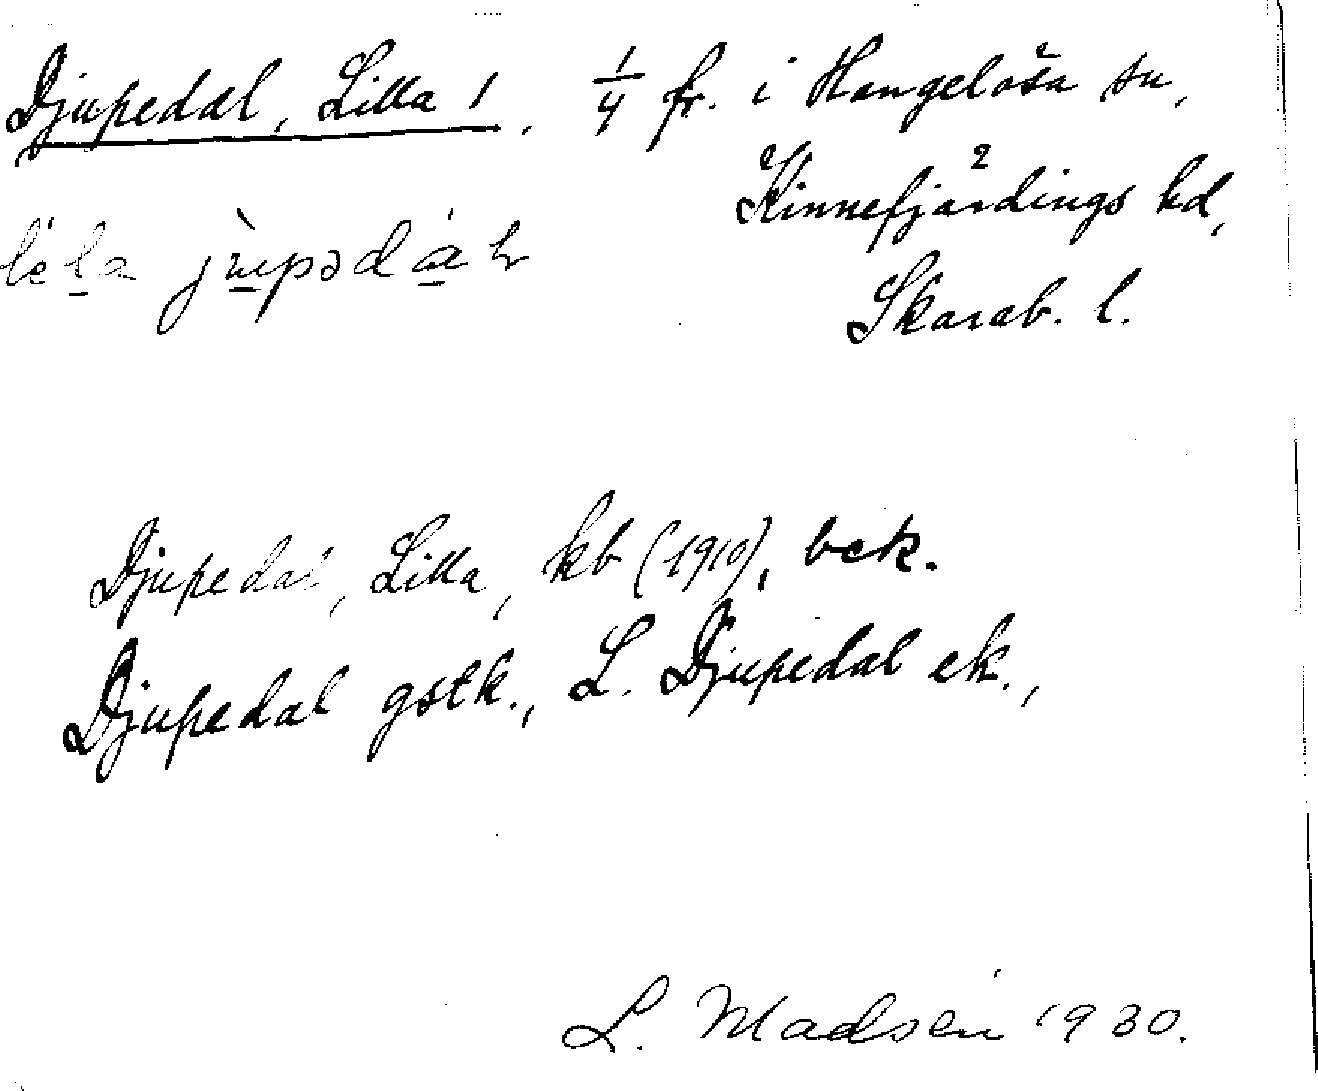 Djupedal, Lilla 1, 1/4 fr. i Hangelösa sn,
Kinnefjärdings hd,
Skarab. l.
Djupedal, Lilla, kb (1910), bek.
Djupedal gstk., L. Djupedal ek.,
L. Madsén 1930.